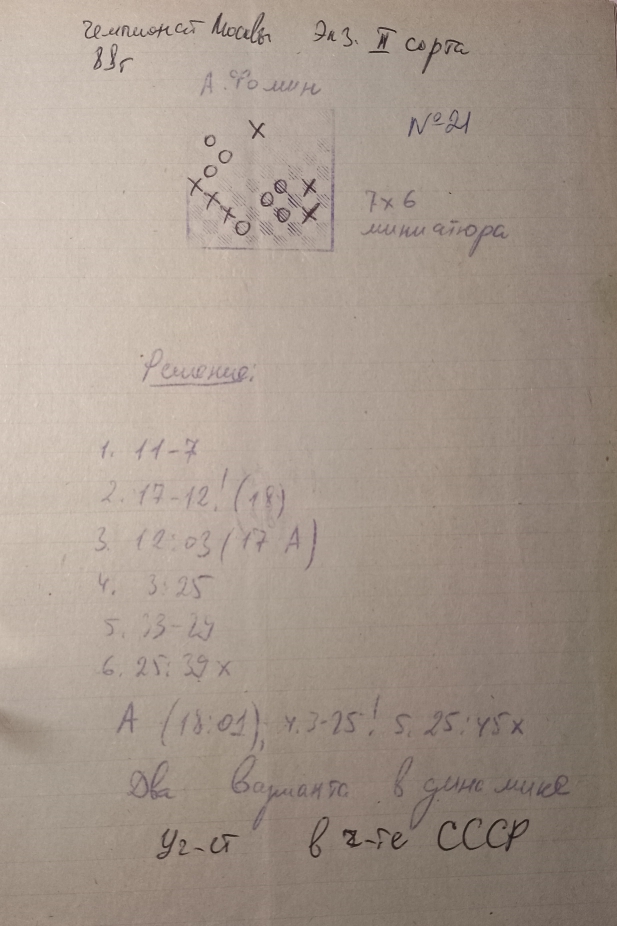 Чемпионат Москвы Экз. II сорта
89г
А. Фомин
№ 21
7х6
миниатюра
Решение:
1. 11-7
2. 17-12! (18)
3. 12:03 (17 А)
4. 3:25
5. 33-29
6. 25:39 х
А (18:01), 4. 3-25! 5. 25:45х
Два варианта в динамике
Уч-ст в ч-те СССР